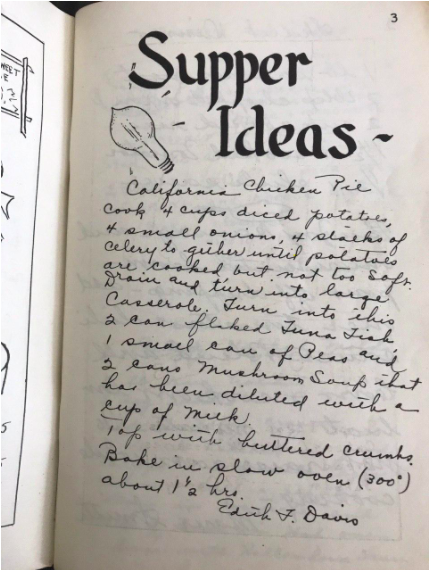 3
Supper
Ideas~
California Chicken Pie
Cook 4 cups diced potatoes,
4 small onions, 4 stacks of
celery to gather until potatoes
are cooked but not too soft.
Drain and turn into large
Casserole. Turn into this
2 can fliked Tuna Fish
1 small can of Peas and
2 cans Mushroom Soup that
has been diluted with a
cup of Milk.
Top with buttered crumbs.
Bake in slow oven (300°)
about 1 1/2 hrs.
Edith F. Davis